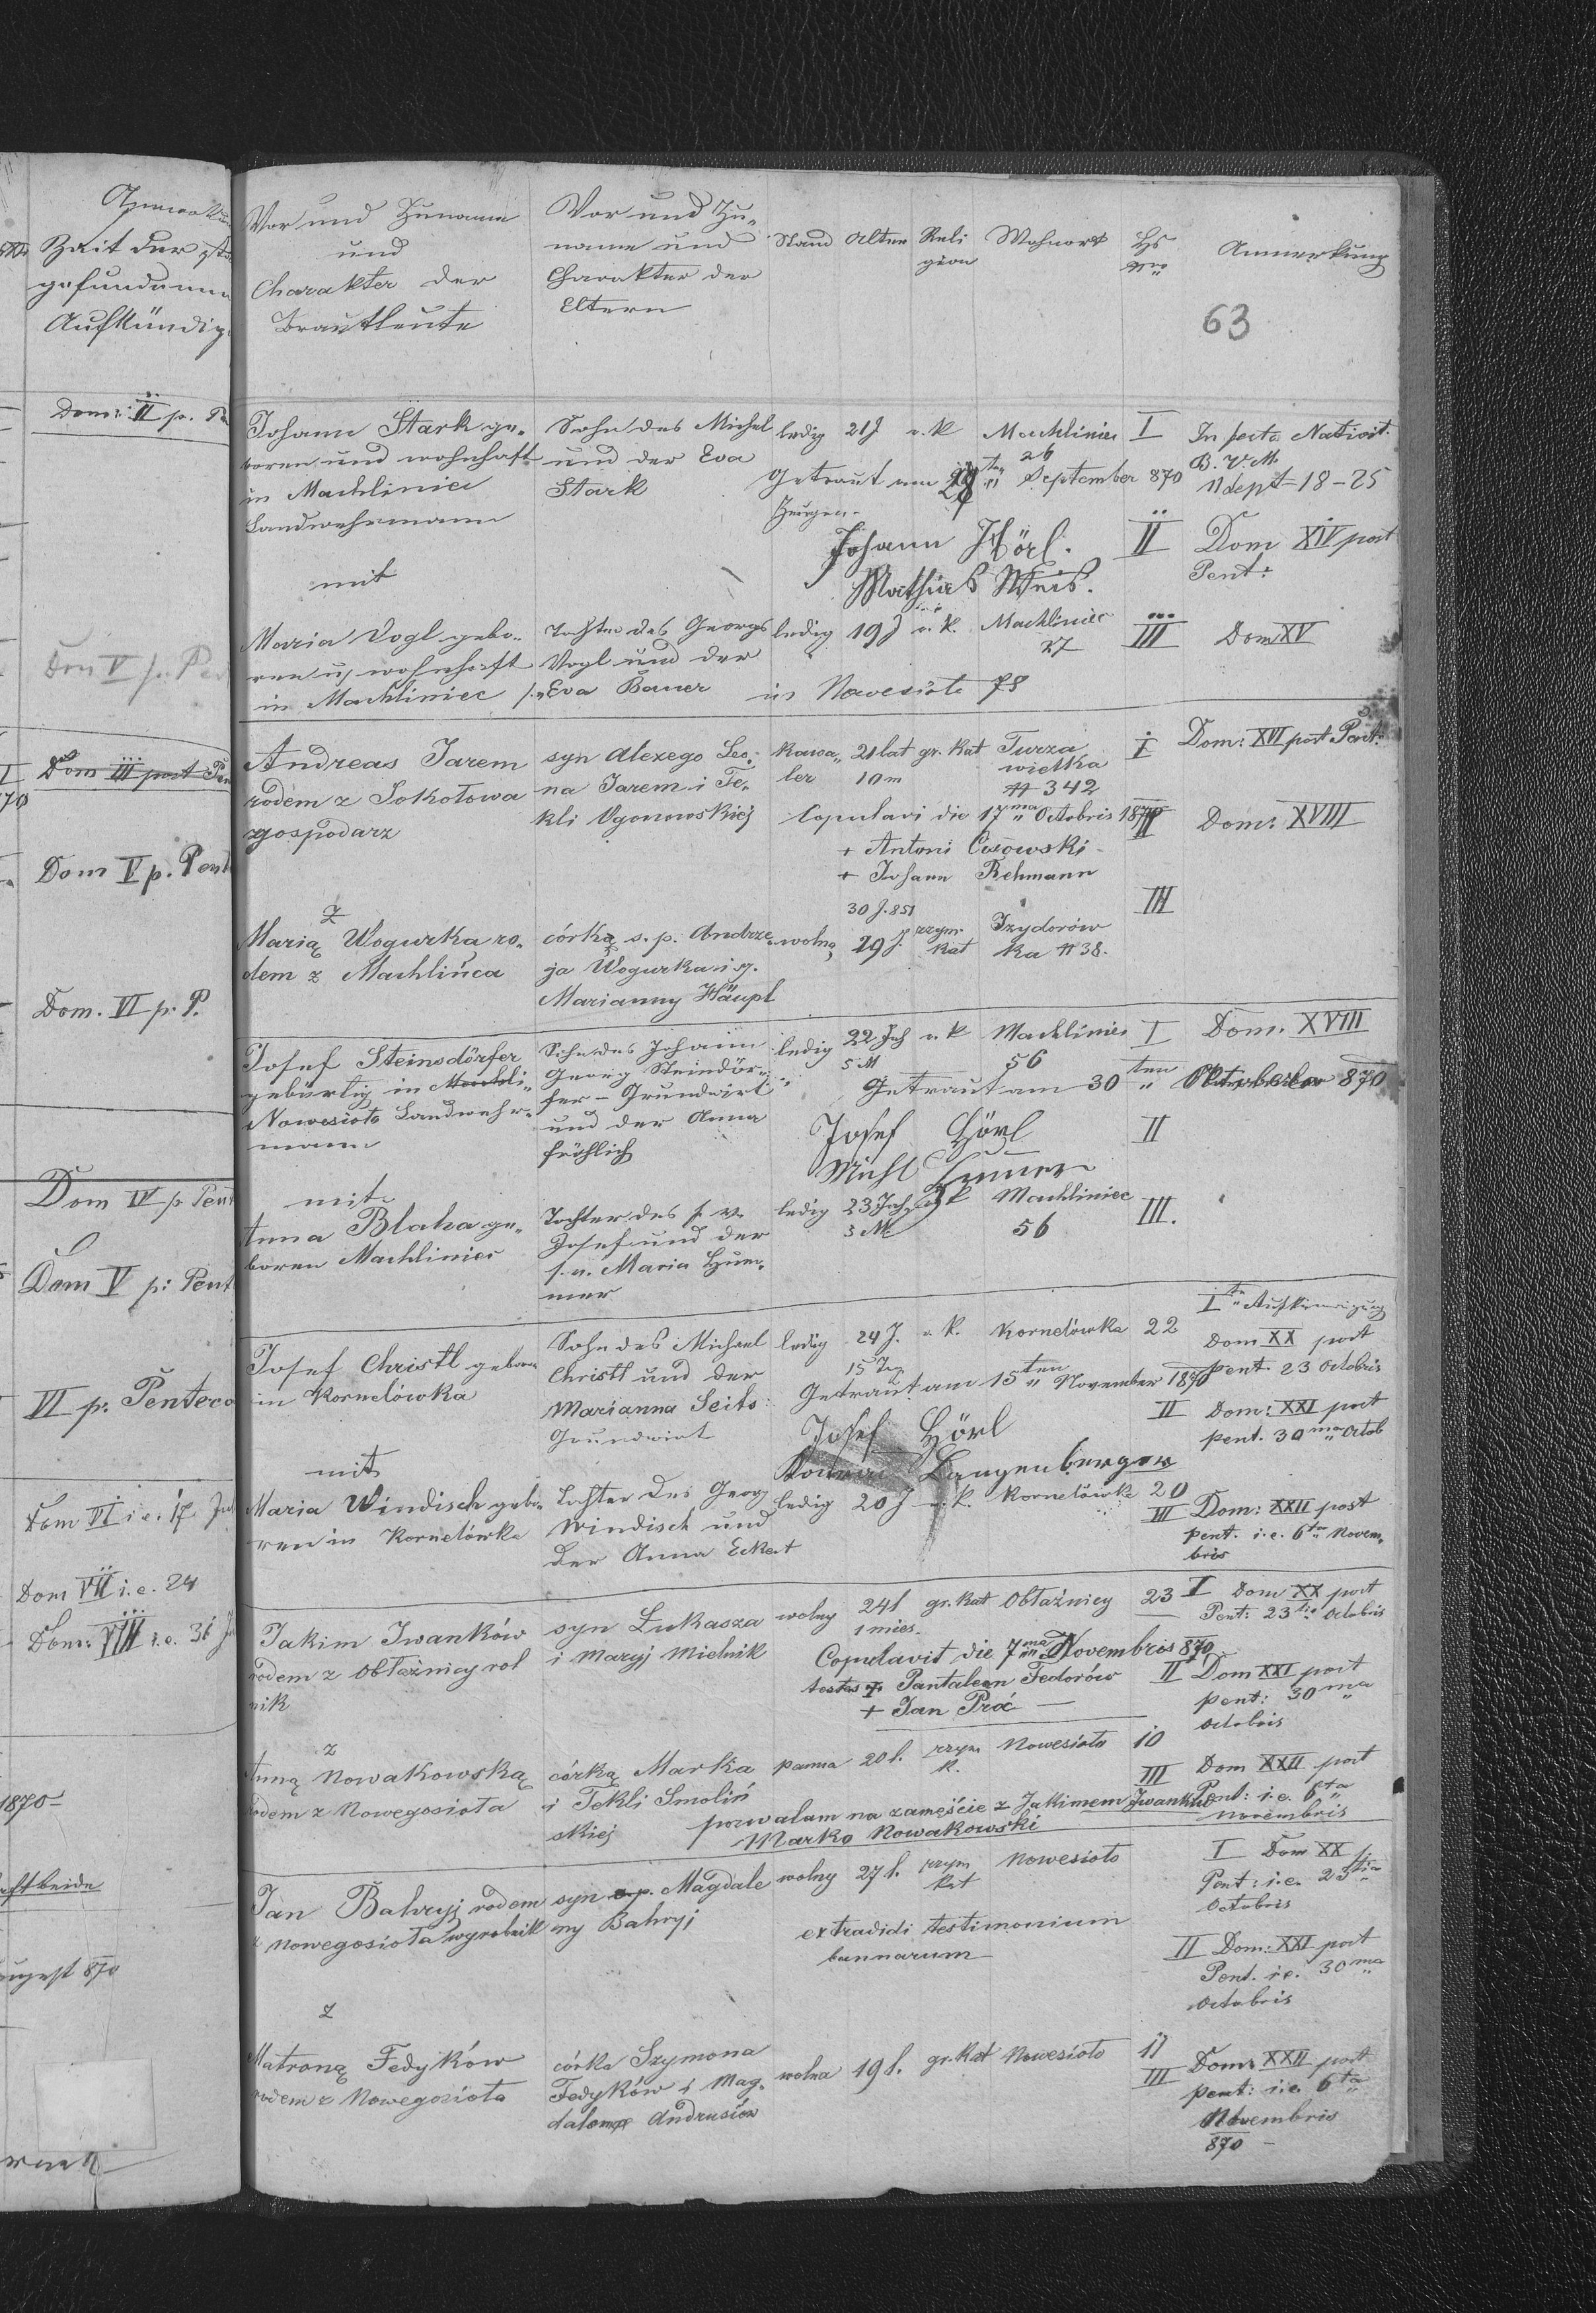 Zeit der
gefundenen
Aufkündig
Dom: II p.
Dom V p. Pe
Dom III post Pen
Dom V p. Pent
Dom. VI p. P.
Dom IV p Pent
Dom V p: Pent
VI p. Penteco
Dom VI i.e. 17
Dom VII i.e. 24
Dom: VIII i.e. 31
1870
beide
870
Vor und Zuname
und
Charakter der
Brautleute
Vor und Zu-
name und
Charakter der
Eltern
Stand Alter Reli
gion
Wohnort
Hs
Nro
Anmerkung
63
Johann Stark ge-
boren und wohnhaft
in Machliniec
Landwehrmann
Sohn des Michel
und der Eva
Stark
ledig 21 J r. k Machliniec
26
Getraut am ten September 870
Zeugen
Johann Hörl.
Mathias Weis.
I In festo Nativit.
B. V. M.
11 Sept - 18 - 25
II Dom XIV post
Pent:
mit
Maria Vogl gebo-
ren u wohnhaft
in Machliniec
Tochter des Georgs
Vogl und der
Eva Bauer
ledig 19 J r. k. Machliniec
27
in Nowesioło 78
III Dom XV
Andreas Jarem
rodem z Sokołowa
gospodarz
syn Alexego Leo-
na Jarem i Te-
kli Ogonowskiej
kawa-
ler
21 lat
10 m
gr. kat Turza
wielka
# 342
Copulavi die 17ma Octobris 1870
+ Antoni
+ Johann Rehmann
I Dom: XVII post Pent:
II Dom: XVIII
III
z
Marią Wogurka ro-
dem z Machlińca
córką s. p. Andrze-
ja Wogurka i
Marianny Häupl
wolną
30 J. 851
29 J. rzym
kat
Izydorów
ka # 38.
Josef Steinsdörfer
gebürtig in Machli-
Nowesioło Landwehr-
mann
Sohn des Johann
Georg Steindör-
fer - Grundwirt
und der Anna
fröhlich
ledig 22 Jah r. k Machliniec
5 M 56
Getraut am 30ten 870
Josef Hörl
I Dom. XVIII
II
mit
Anna Blaha ge-
boren Machliniec
Tochter des s. v.
Josef und der
s. v. Maria Hum-
mer
ledig 23 Jah r k Machliniec
3 M 56
III.
Josef Christl geboren
in Kornelówka
Sohn des Michael
Christl und der
Marianna Seits
Grundwirt
ledig 24 J. r. k. Kornelówka 22
15 Tag
Getraut am 15ten November 1870
Josef Hörl
Konrad Langenberger
Ite Aufkündigung
Dom XX post
pent. 23 Octobris
II Dom: XXI post
pent. 30ma Octob
mit
Maria Windisch gebo-
ren in Kornelówka
Tochter des Georg
Windisch und
der Anna Eckert
ledig 20 J r. k. Kornelówka 20
III Dom: XXII post
pent. i.e. 6ta Novem-
bris
Jakim Iwanków
rodem z Obłaźnicy rol
nik
syn Łukasza
i Maryj Mielnik
wolny 24 l gr. kat Obłaźnicy 23
1 mies.
Copulavit die 7ma Novembris 870
testes + Pantaleon Fedorów
+ Jan Proć
I Dom XX post
Pent: 23tia Octobris
II Dom XXI post
pent: 30ma
Octobris
z
Anną Nowakowską
rodem z Nowegosioła
córką Marka
i Tekli Smoliń
skiej
panna 20 l. rzym
k.
Nowesioło 10
pozwalam na zamęście z Jakimem Iwanków
Marko Nowakowski
III Dom XXII post
Pent: i.e. 6ta
Novembris
Jan Bahryj rodem
z Nowegosioła wyrobnik
syn s.p. Magdale
ny Bahryj
wolny 27 l. rzym
kat
Nowesioło
extradidi testimonium
bannorum
I Dom XX p
Pent: i.e. 23tia
Octobris
II Dom: XXI post
Pent. i.e. 30ma
Octobris
z
Matroną Fedyków
rodem z Nowegosioła
córka Szymona
Fedyków i Mag-
daleny Andrusiów
wolna 19 l. gr. kat Nowesioło 17
III Dom: XXII post
pent: i.e. 6ta
Novembris
870